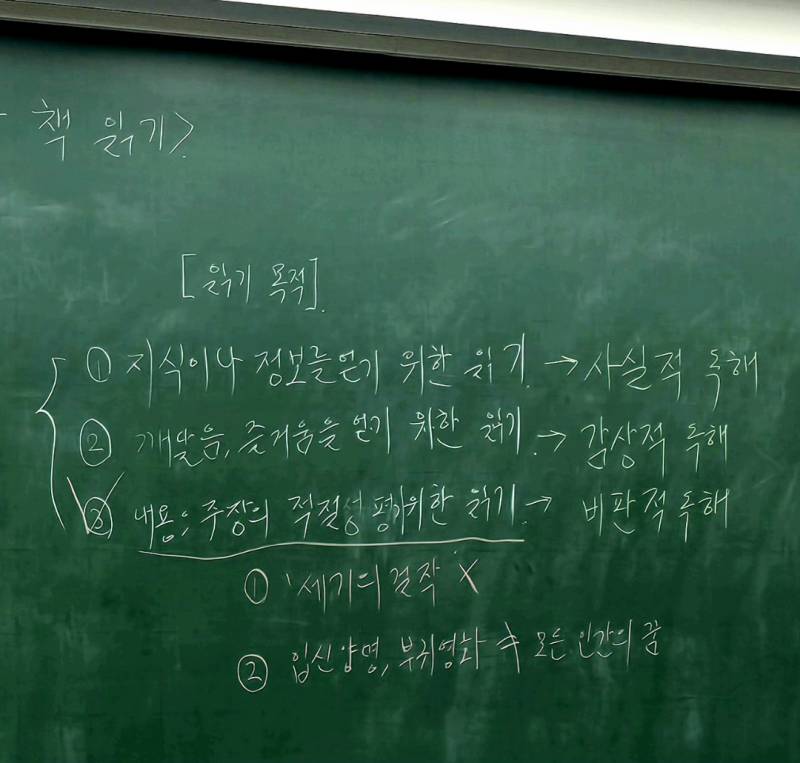 책 읽기>
[읽기 목적].
① 지식이나 정보를 얻기 위한 읽기. → 사실적 독해
② 깨달음, 즐거움을 얻기 위한 읽기. → 감상적 독해
③ 내용, 주장의 적절성 평가 위한 읽기. → 비판적 독해
① '세기의 걸작' X
② 입신양명, 부귀영화 ≠ 모든 인간의 꿈